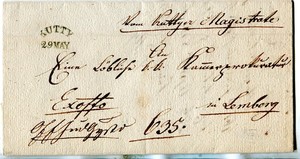 KUTTY
29 MAY
Vom Kuttyer Magistrate
An
Eine Löbliche k.k. Kammerprokuratur
Exoffo
in Lemberg
635.